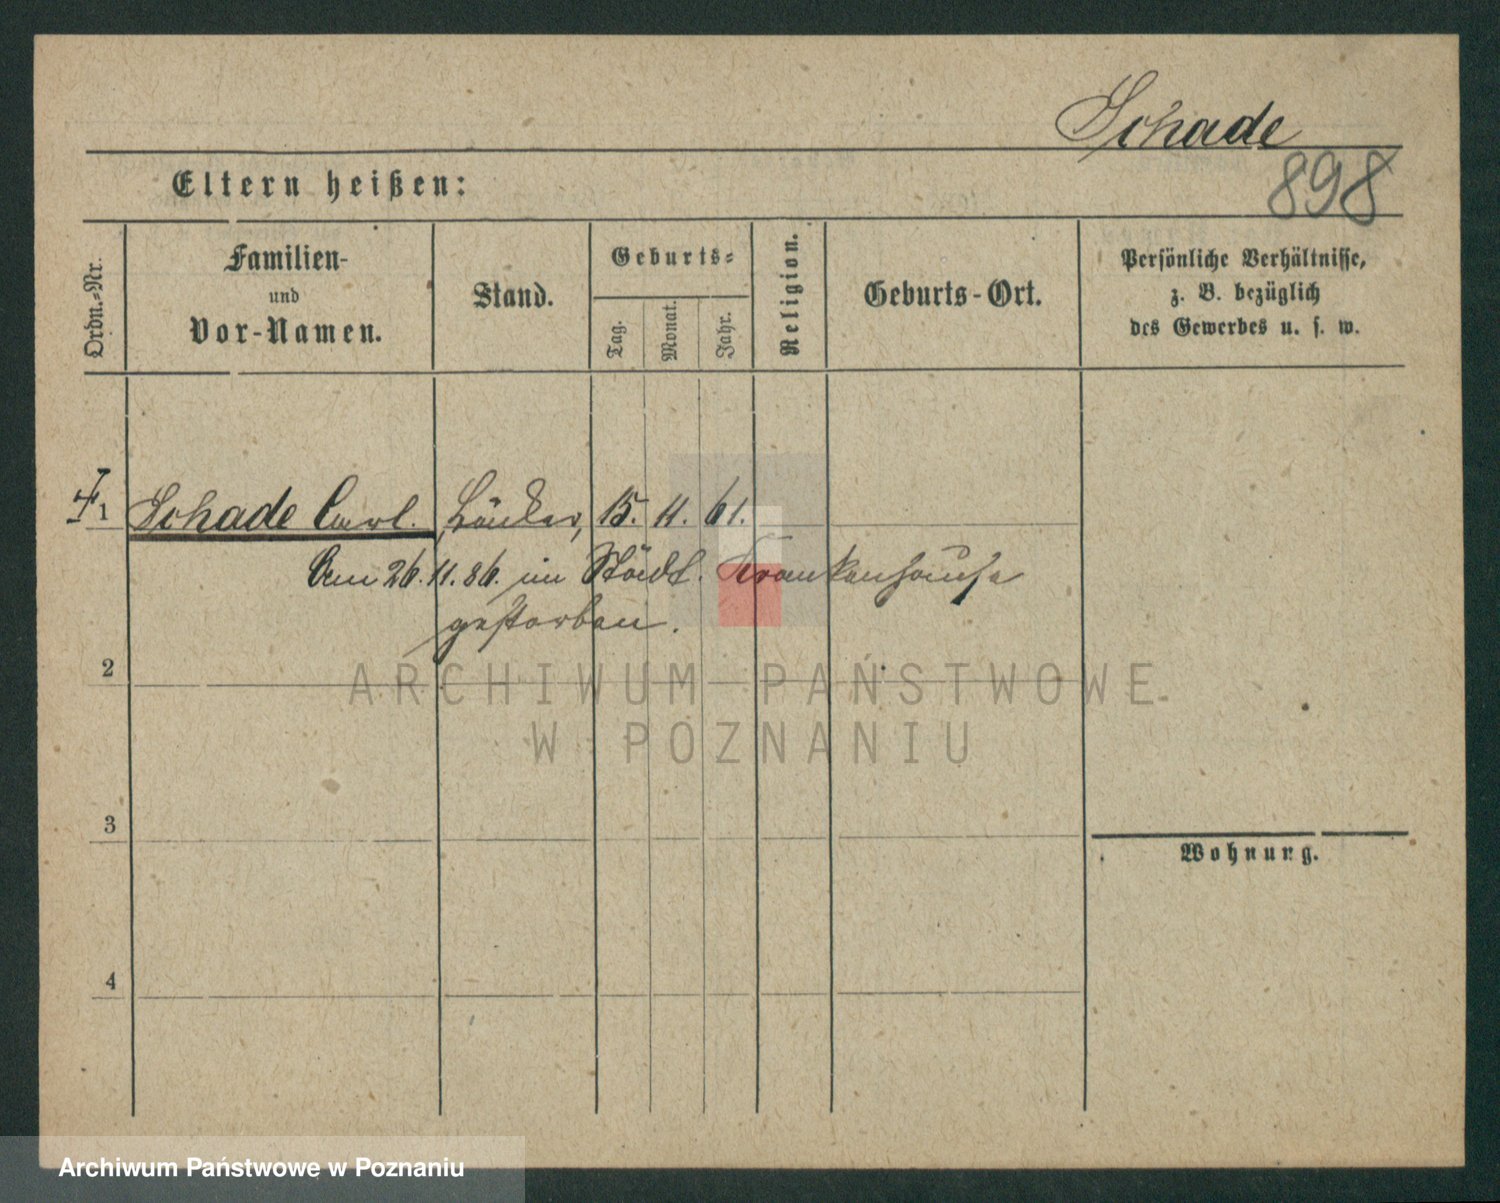 Schade
898
Eltern heißen:
Ordn.-Nr.
Familien-
und
Vor-Namen.
Stand.
Geburts-
Tag.
Monat.
Jahr.
Religion.
Geburts-Ort.
Persönliche Verhältnisse,
z. B. bezüglich
des Gewerbes u. s. w.
1 Schade Carl. 15. 11. 61.
Am 26. 11. 86. im Städt. Krankenhause
gestorben.
2
ARCHIWUM PAŃSTWOWE
W POZNANIU
3
Wohnung.
4
Archiwum Państwowe w Poznaniu